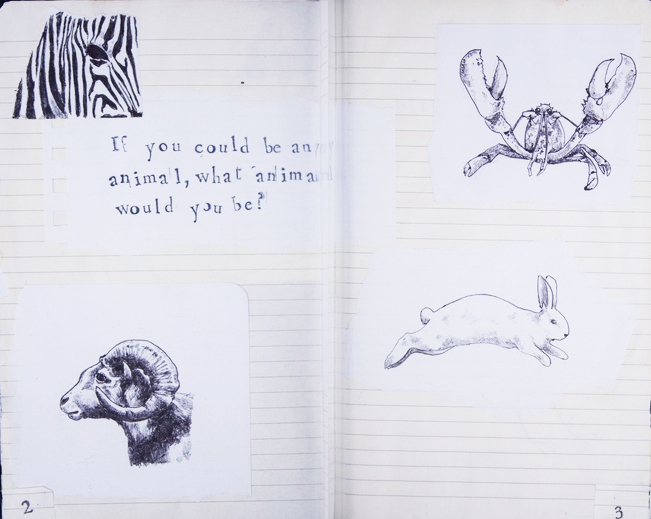 If you could be any
animal, what anima
would you be?
2
3